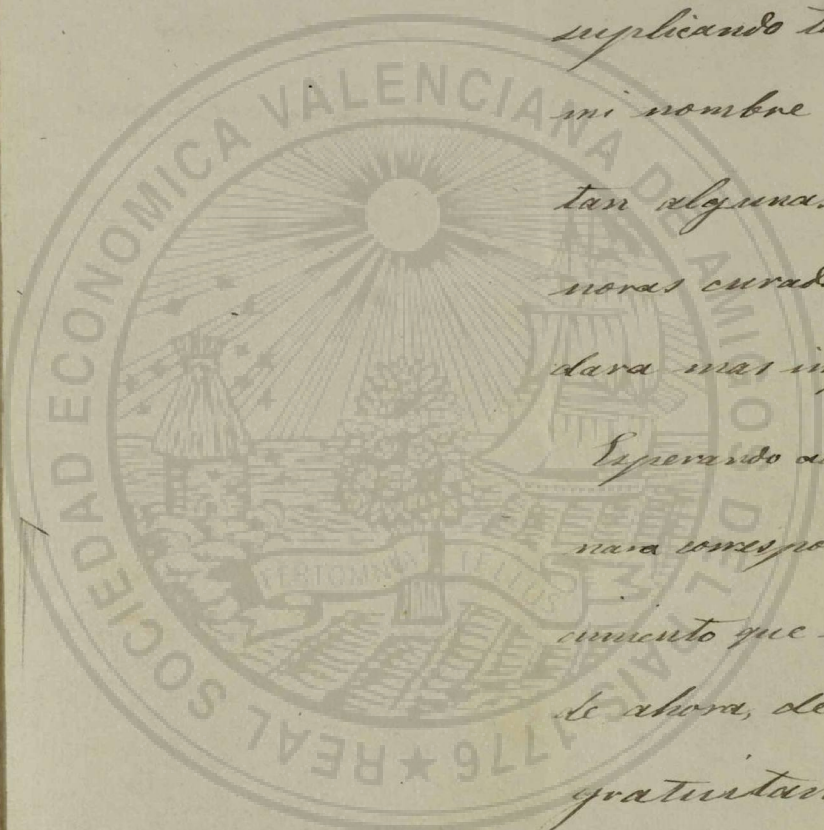 REAL SOCIEDAD ECONOMICA VALENCIANA DE AMIGOS DEL PAIS 1776 ★
FERT OMNIA TELLUS
suplicando t
mi nombre
tan algunas
noras curad
dara mas im
Esperando a
nara correspo
cimiento que
de ahora, de
gratuitam